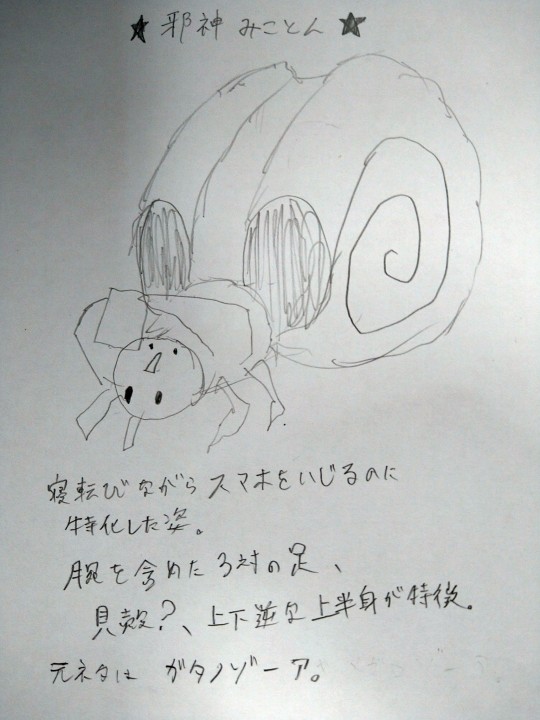 ★ 邪神 みことん ★
寝転びながらスマホをいじるのに
特化した姿。
腕を含めた3対の足、
貝殻?、上下逆な上半身が特徴。
元ネタは ガタノゾーア。